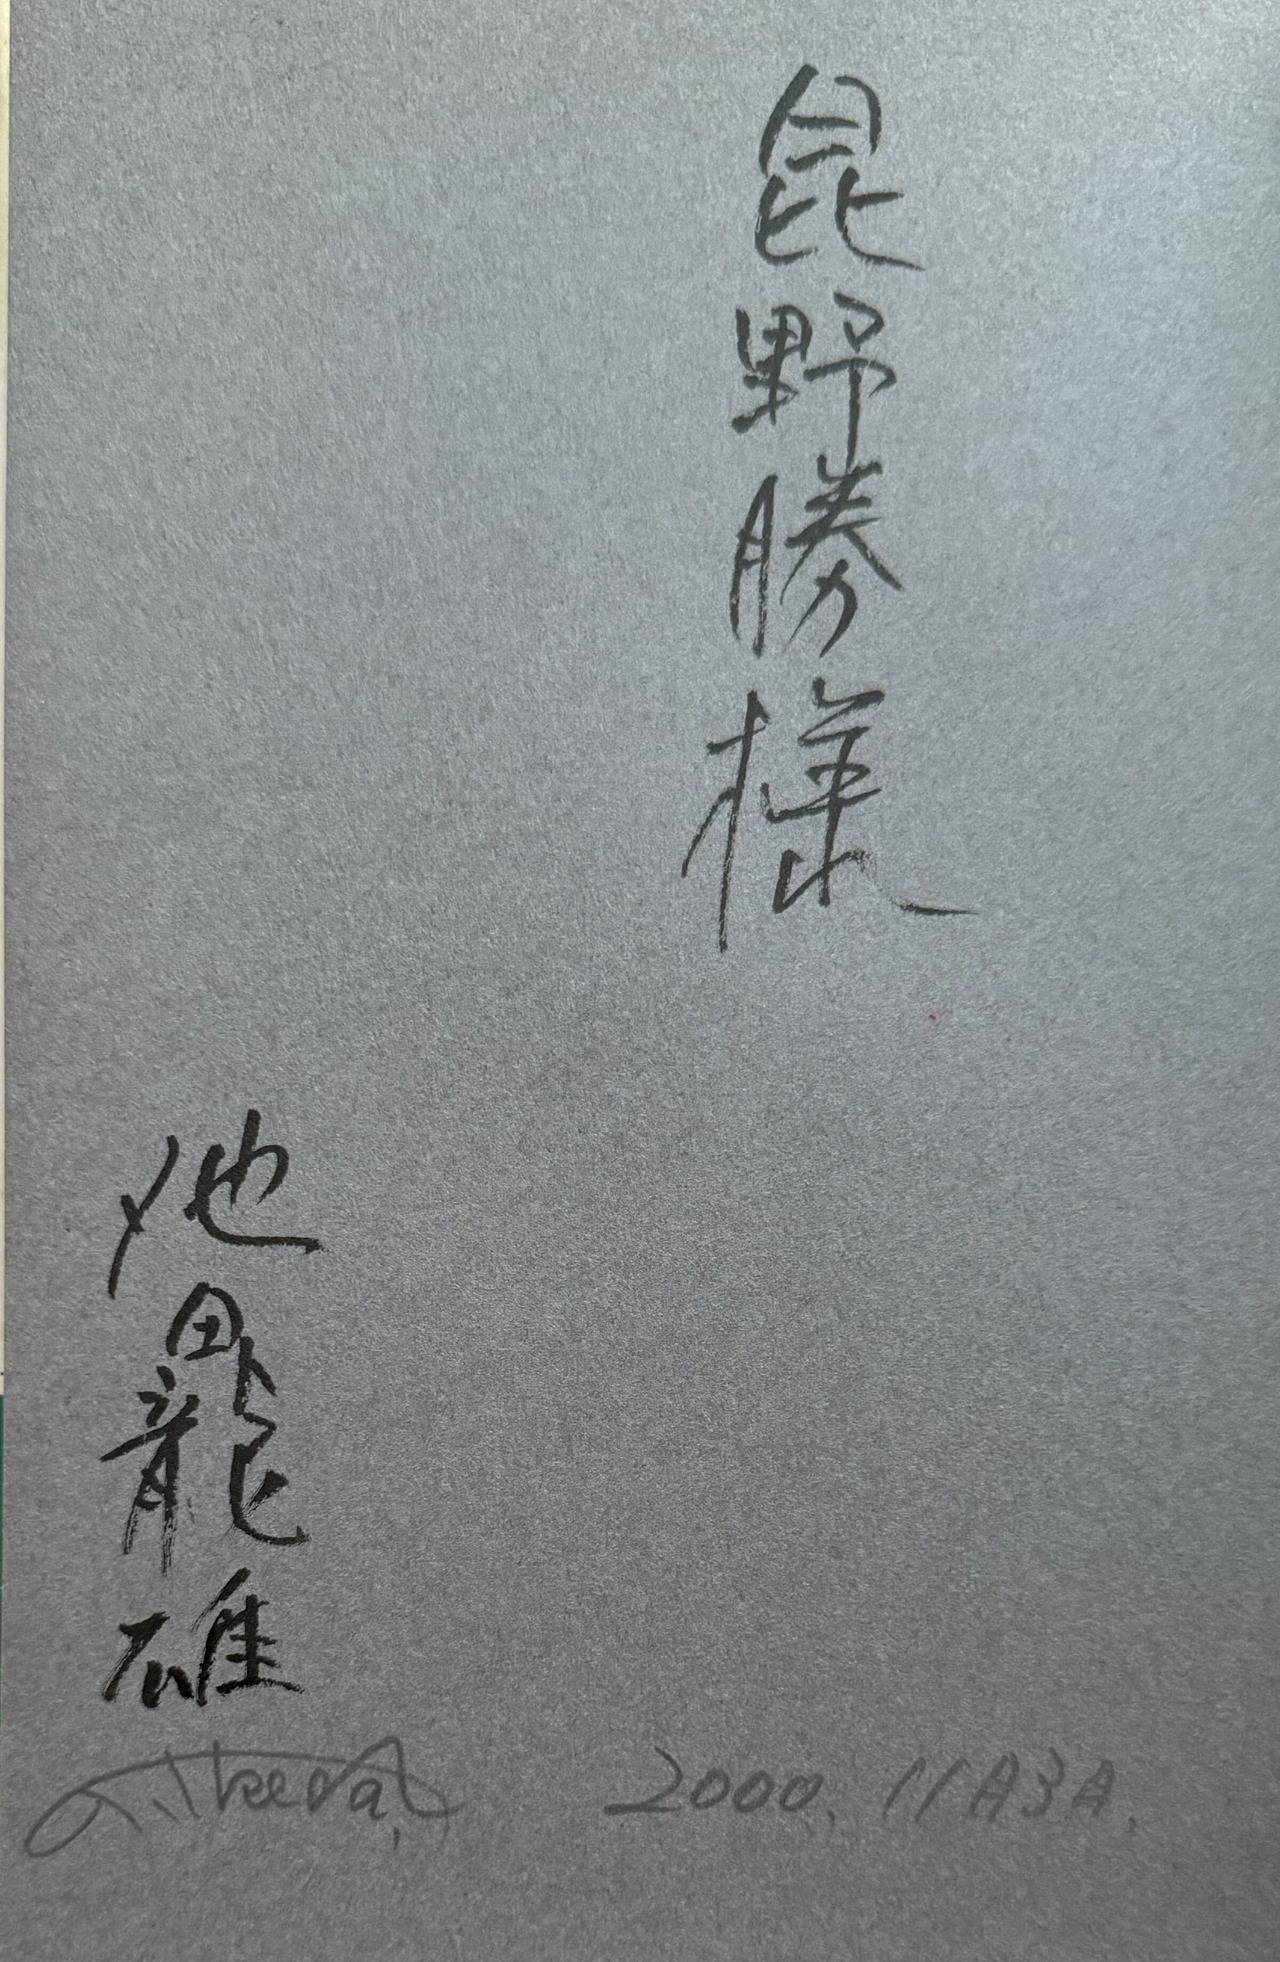 昆野勝様
池田龍雄
Ikeda
2000. 11月3日.